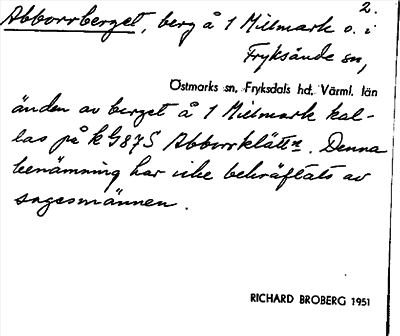 2.
Abborrberget, berg å 1 Millmark o. i
Fryksände sn,
Östmarks sn, Fryksdals hd, Värml. län
änden av berget å 1 Millmark kal-
las på k G87S Abborrklätt<u>n</u>. Denna
benämning har icke bekräftats av
sagesmännen.
RICHARD BROBERG 1951